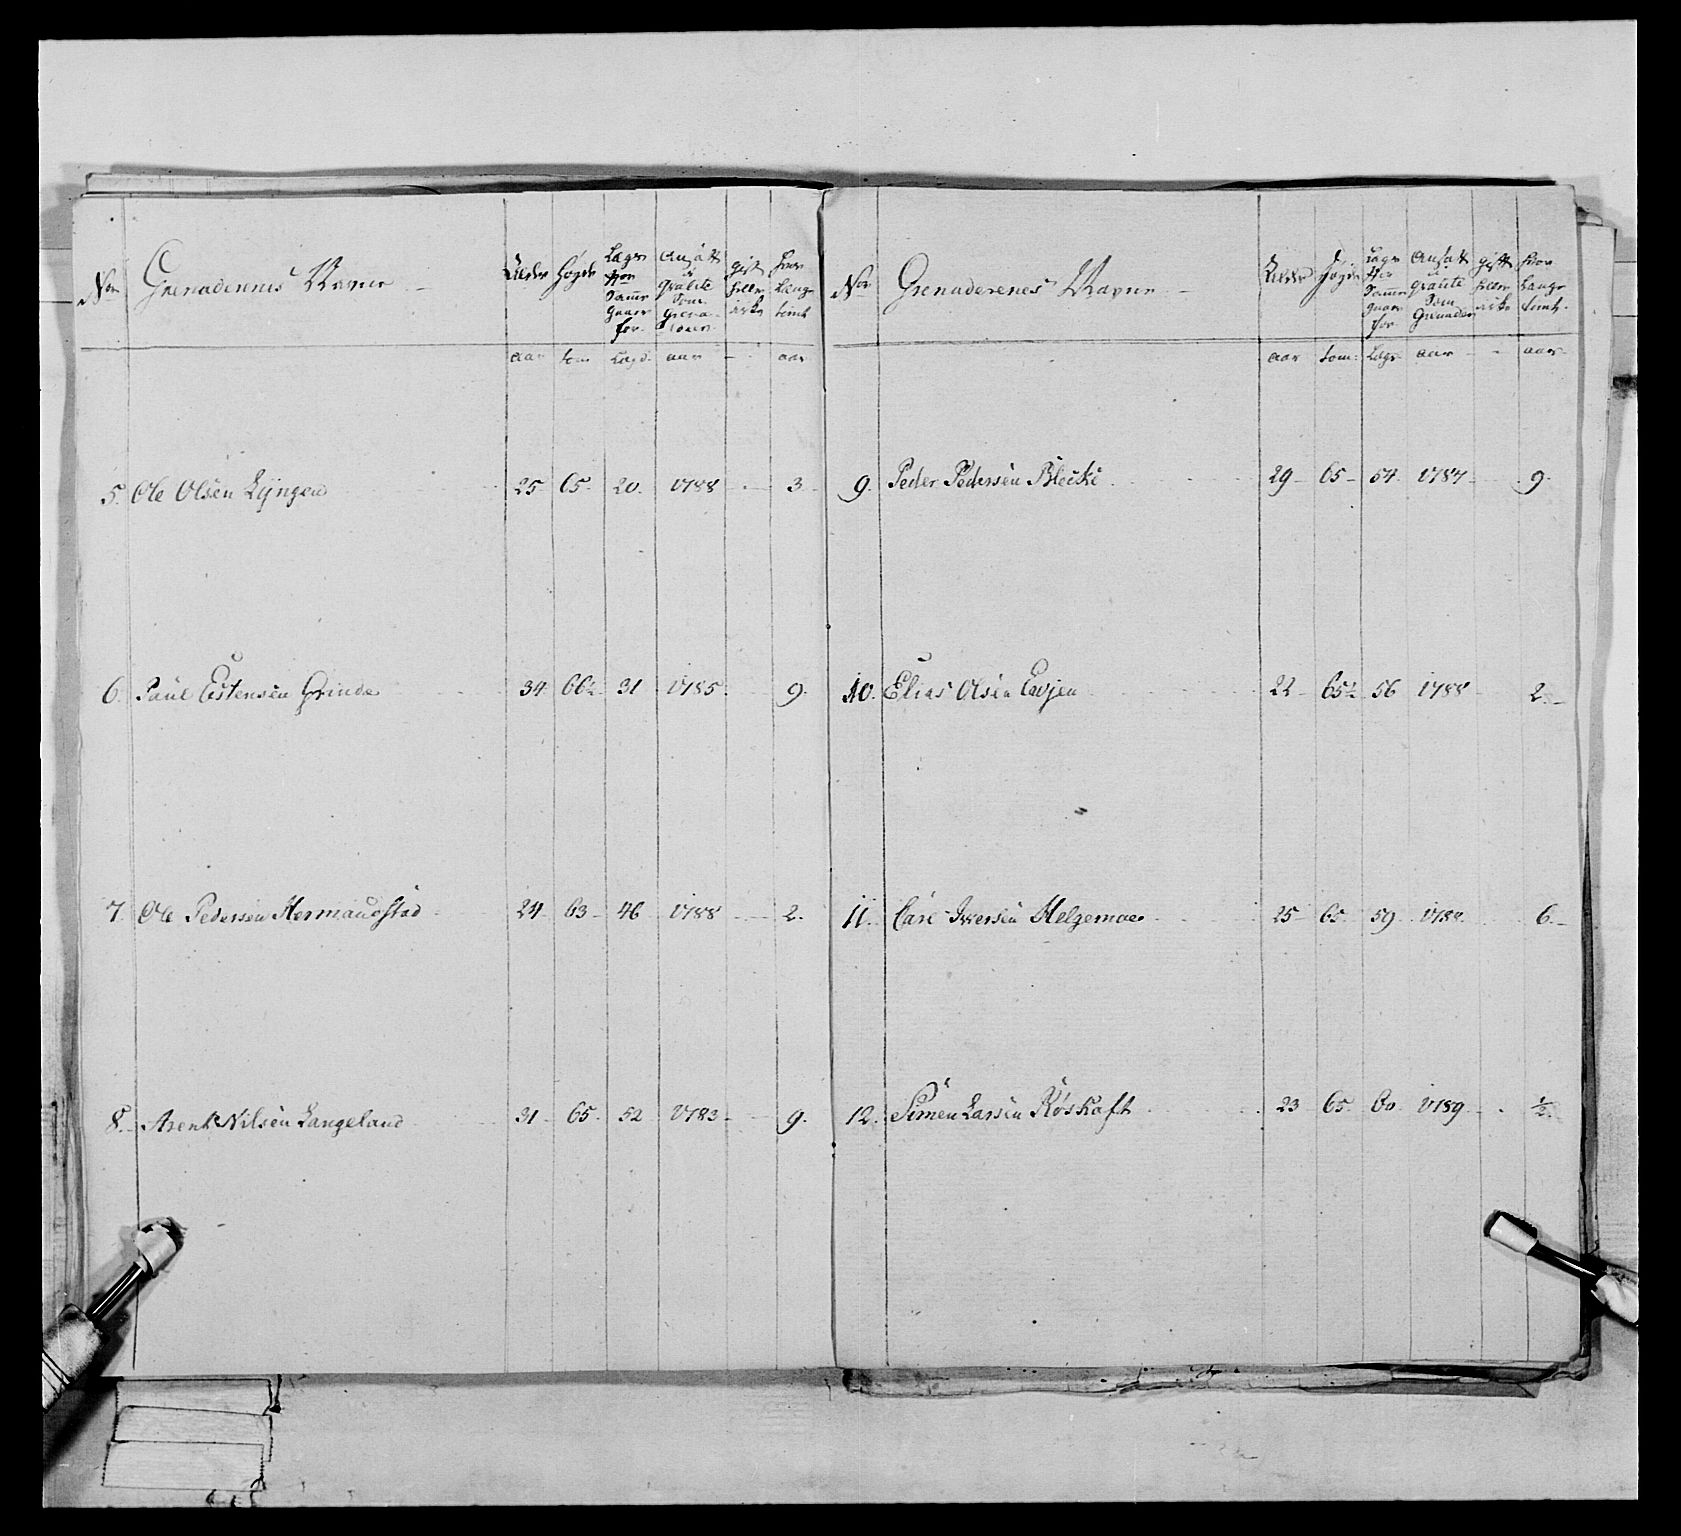 No Grenaderenes Navne Alder Høyde Lægs No Samme staaer for Ansatt i Qvalité Som Grenadeer gift heller icke hvor Længe tient
aar tom Lægd aar aar
5. Ole Olsen Lÿngen 25 65 20. 1788 3
6. Paul Estensen Grinde 34 66½ 31 1785. 9.
7. Ole Pedersen Hermandstad 24 63 46 1788 2.
8. Arent Nilsen Langeland 31. 65. 52 1783 9.
No Grenaderenes Navne Alder Høyde Lægs No Samme staaer for Ansatt i Qvalité Som Grenadeer gift heller icke hvor Længe tient
aar tom: Lægs aar aar
9. Peder Pedersen Blecke 29 65 54. 1787 9.
10. Elias Olsen Evjen 22 65½ 56 1788 2.
11. Carl Iversen Helgemoe 25 65 59 1788. 6.
12. Simen Larsen Røskaft 23 65. 60. 1789 ½